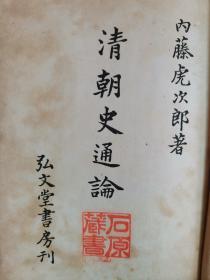 內藤虎次郎著
清朝史通論
弘文堂書房刊
石原
藏書